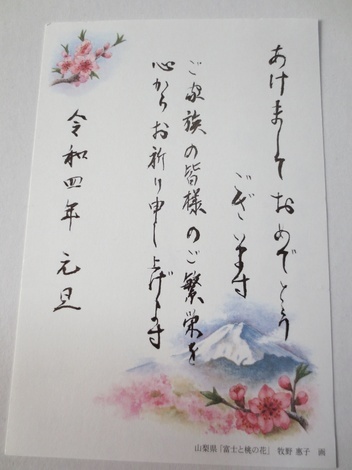 あけましておめでとう
ございます
ご家族の皆様のご繁栄を
心からお祈り申し上げます
令和四年 元旦
山梨県「富士と桃の花」 牧野 惠子 画